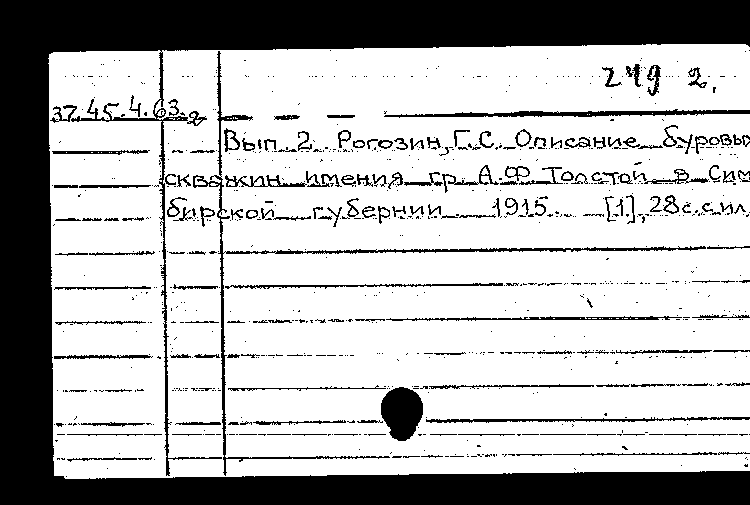 249 2.
37.45.4.63.2 — — —
Вып. 2. Рогозин, Г.С. Описание буровых
скважин имения гр. А.Ф. Толстой в Сим
бирской губернии 1915. [1], 28с.с ил.